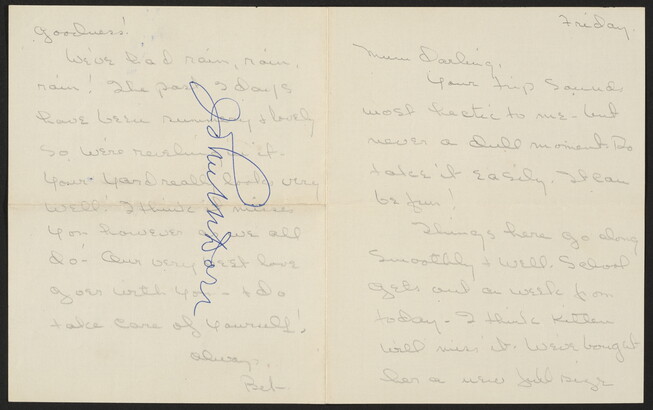 Friday.
Mum Darling,
Your trip sounds
most hectic to me - but
never a dull moment. Do
take it easily. It can
be fun!
Things here go along
smoothly & well. School
gets out a week from
today - I think Kitten
will miss it. We've bought
her a new full size
goodness!
We've had rain, rain,
rain! The past 2 days
have been sunny & lovely
so we're reveling in it.
Your yard really looks very
well! I think it misses
you however as we all
do - Our very best love
goes with you - & do
take care of yourself!
Always,
Bet-